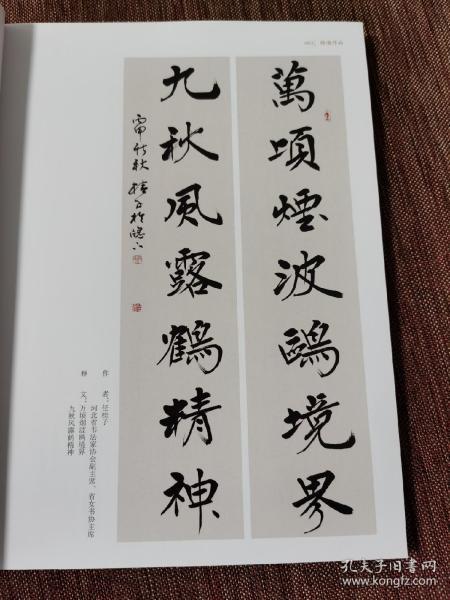 萬頃煙波鷗境界
九秋風露鶴精神
作 者：任桂子
河北省书法家协会副主席、省女书协主席
释 文：万顷烟波鸥境界
九秋风露鹤精神
孔夫子旧书网
www.kongfz.com